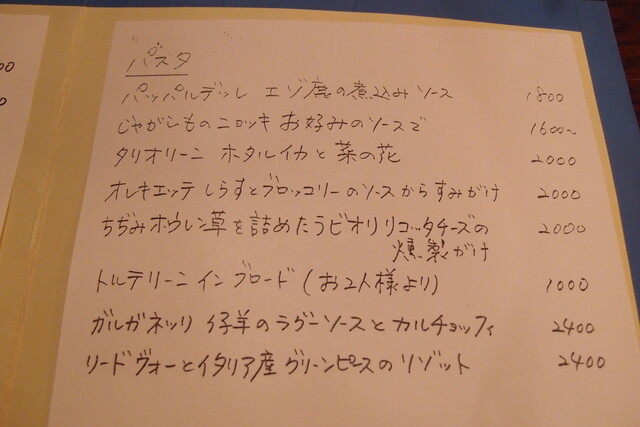 パスタ
パッパルデッレ エゾ鹿の煮込みソース 1800
じゃがいものニョッキ お好みのソースで 1600~
タリオリーニ ホタルイカと菜の花 2000
オレキエッテ しらすとブロッコリーのソースからすみがけ 2000
ちぢみホウレン草を詰めたラビオリ リコッタチーズの
燻製がけ 2000
トルテリーニ イン ブロード (お2人様より) 1000
ガルガネッリ 仔羊のラグーソースとカルチョッフィ 2400
リードヴォーとイタリア産グリーンピースのリゾット 2400
00
0